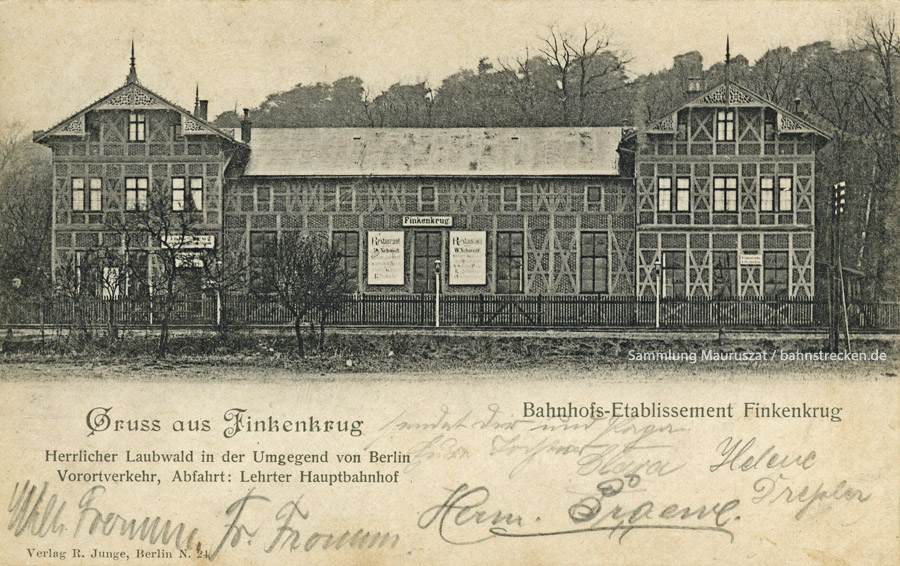 Finkenkrug
Restaurant
W. Schmidt
Restaurant
W. Schmidt
Sammlung Mauruszat / bahnstrecken.de
Bahnhofs-Etablissement Finkenkrug
Gruss aus Finkenkrug
sendet Dir und Papa
Herrlicher Laubwald in der Umgegend von Berlin
Clara
Helene
Vorortverkehr, Abfahrt: Lehrter Hauptbahnhof
Fr. Fromm.
Herm.
Verlag R. Junge, Berlin N. 24